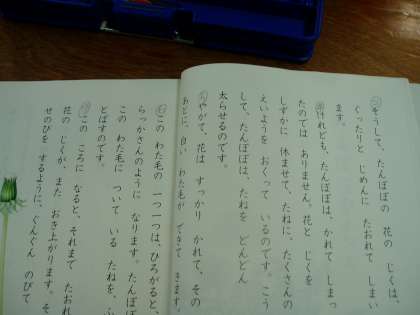 そうして、たんぽぽの 花の じくは、
ぐったりと じめんに たおれて しまい
ます。
けれども、たんぽぽは、かれて しまっ
たのでは ありません。花と じくを
しずかに 休ませて、たねに、たくさんの
えいようを おくって いるのです。こう
して、たんぽぽは、たねを どんどん
太らせるのです。
やがて、花は すっかり かれて、その
あとに、白い わた毛が できて きます。
この わた毛の 一つ一つは、ひろがると、
らっかさんのように なります。たんぽ
この わた毛に ついて いる たねを、ふ
とばすのです。
この ころに なると、それまで たおれ
花の じくが、また おき上がります。そ
せのびを するように、ぐんぐん のびて